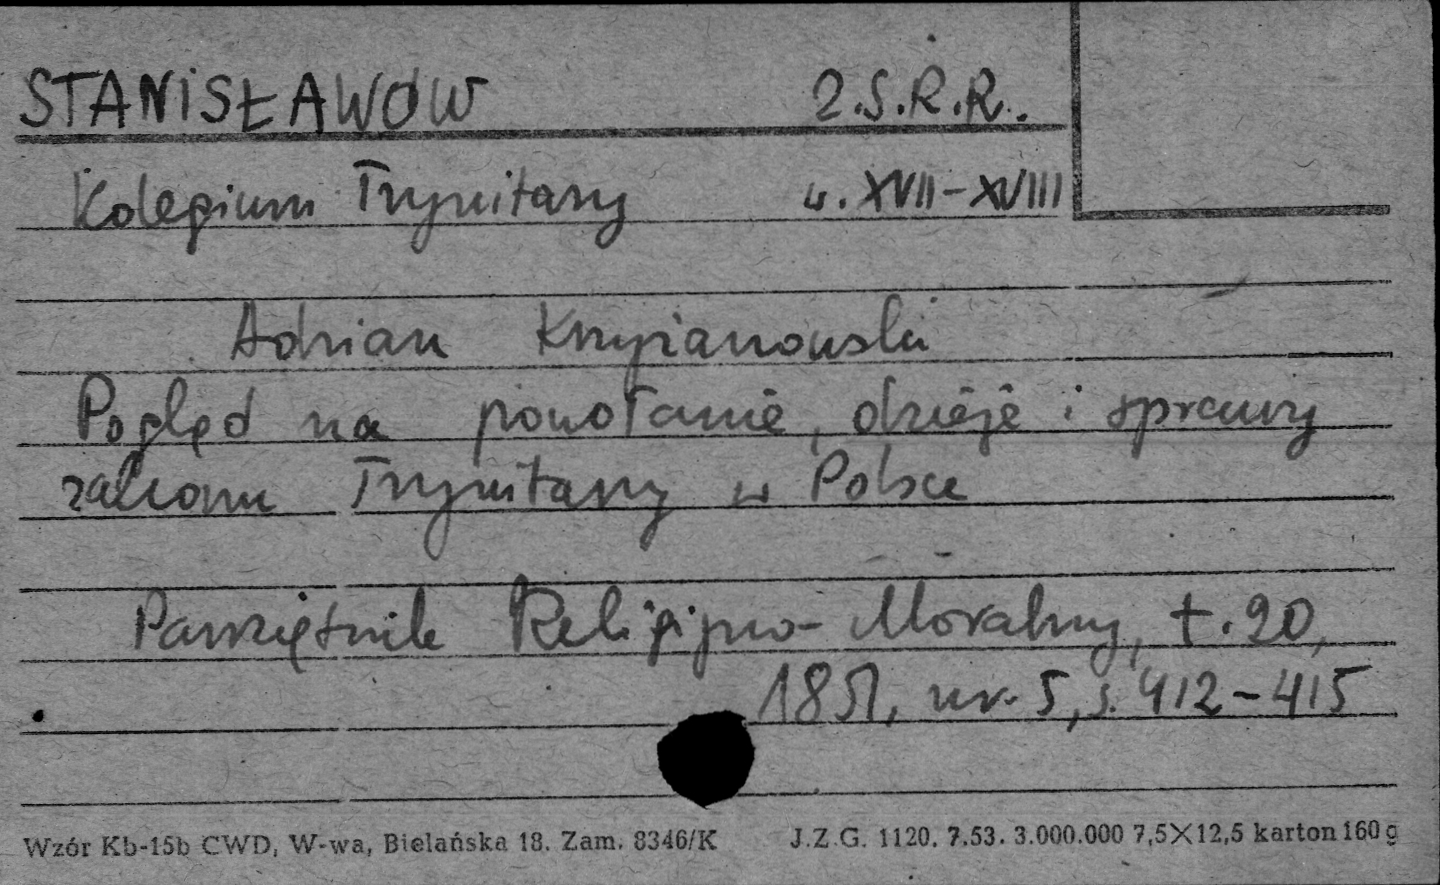 STANISŁAWÓW Z.S.R.R.
Kolegium Trynitarzy w. XVII-XVIII
Adrian Krzyżanowski
Pogląd na powołanie, dzieje i sprawy
zakonu Trynitarzy w Polsce
Pamiętnik Religijno-Moralny, t. 20,
1851, nr. 5, s. 412-415
Wzór Kb-15b CWD, W-wa, Bielańska 18. Zam. 8346/K J.Z.G. 1120. 7.53. 3.000.000 7,5X12,5 karton 160 g